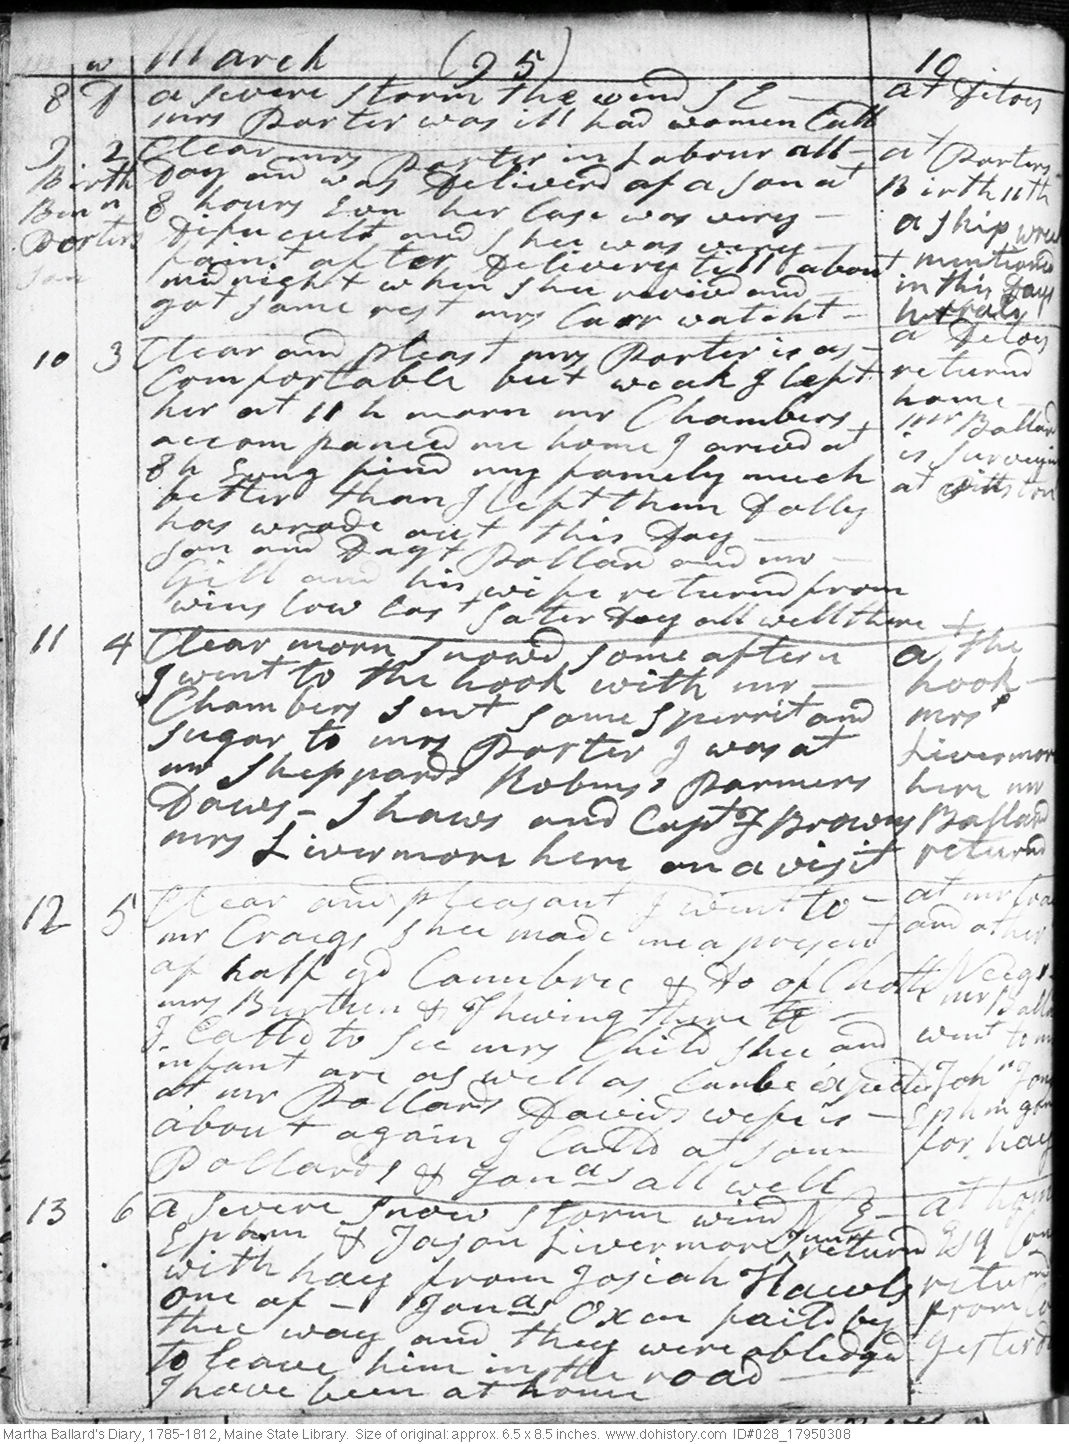 w March (25) 19
8 D a severe storm the wind S E at Ditoes
mrs Porter was ill had women Calld
9 2 Clear mrs Porter in Labour all at Porters
Birth Day and was Deliverd of a son at Birth 11th
8 hours Evn her Case was very a ship wreck
Porters Dificult and shee was very
son faint after Delivery till about mentiond
midnight when shee revivd and in this Days
got some rest mrs Carr watcht
10 3 Clear and pleast mrs Porter is as a Ditoes
Comfortable but weak I left returnd
her at 11 h morn mr Chambers home
accompanied me home I arivd at mr Ballard
8 h Evng find my family much is surveying
better than I left them Dolly at Pittston
has wrode out this Day
son and Dagt Pollard and mr
Gill and his wife returnd from
winslow last Saterday all well there
11 4 Clear morn snowd some aftern at the
I went to the hook with mr hook
Chambers sent some spirrit and mrs
sugar to mrs Porter I was at Livermore
mr Sheppards Robins Parmers here mr
Daws - Shaws and Capt J Browns Ballard
mrs Livermore here on a visit returnd
12 5 Clear and pleasant I went to at mr
mr Craegs shee made me a present and other
of half yd Cambric & Do of Cloth Neigs
mrs Burtun & Thwing there mr Ballard
I Calld to see mrs Child shee and went to
infant are as well as Can be expected
at mr Pollards Davids wife is Ephm gone
about again I Calld at son for hay
Pollards & Jonas all well
13 6 a severe snow storm wind N E at home
Ephm & Jason Livermore Junr return Esq
with hay from Josiah Hawls returnd
one of Jonas Oxen faild by from
the way and they were obledgd yesterd
to leave him in the road
I have been at home
Martha Ballard's Diary, 1785-1812, Maine State Library. Size of original: approx. 6.5 x 8.5 inches. www.dohistory.com ID#028_17950308